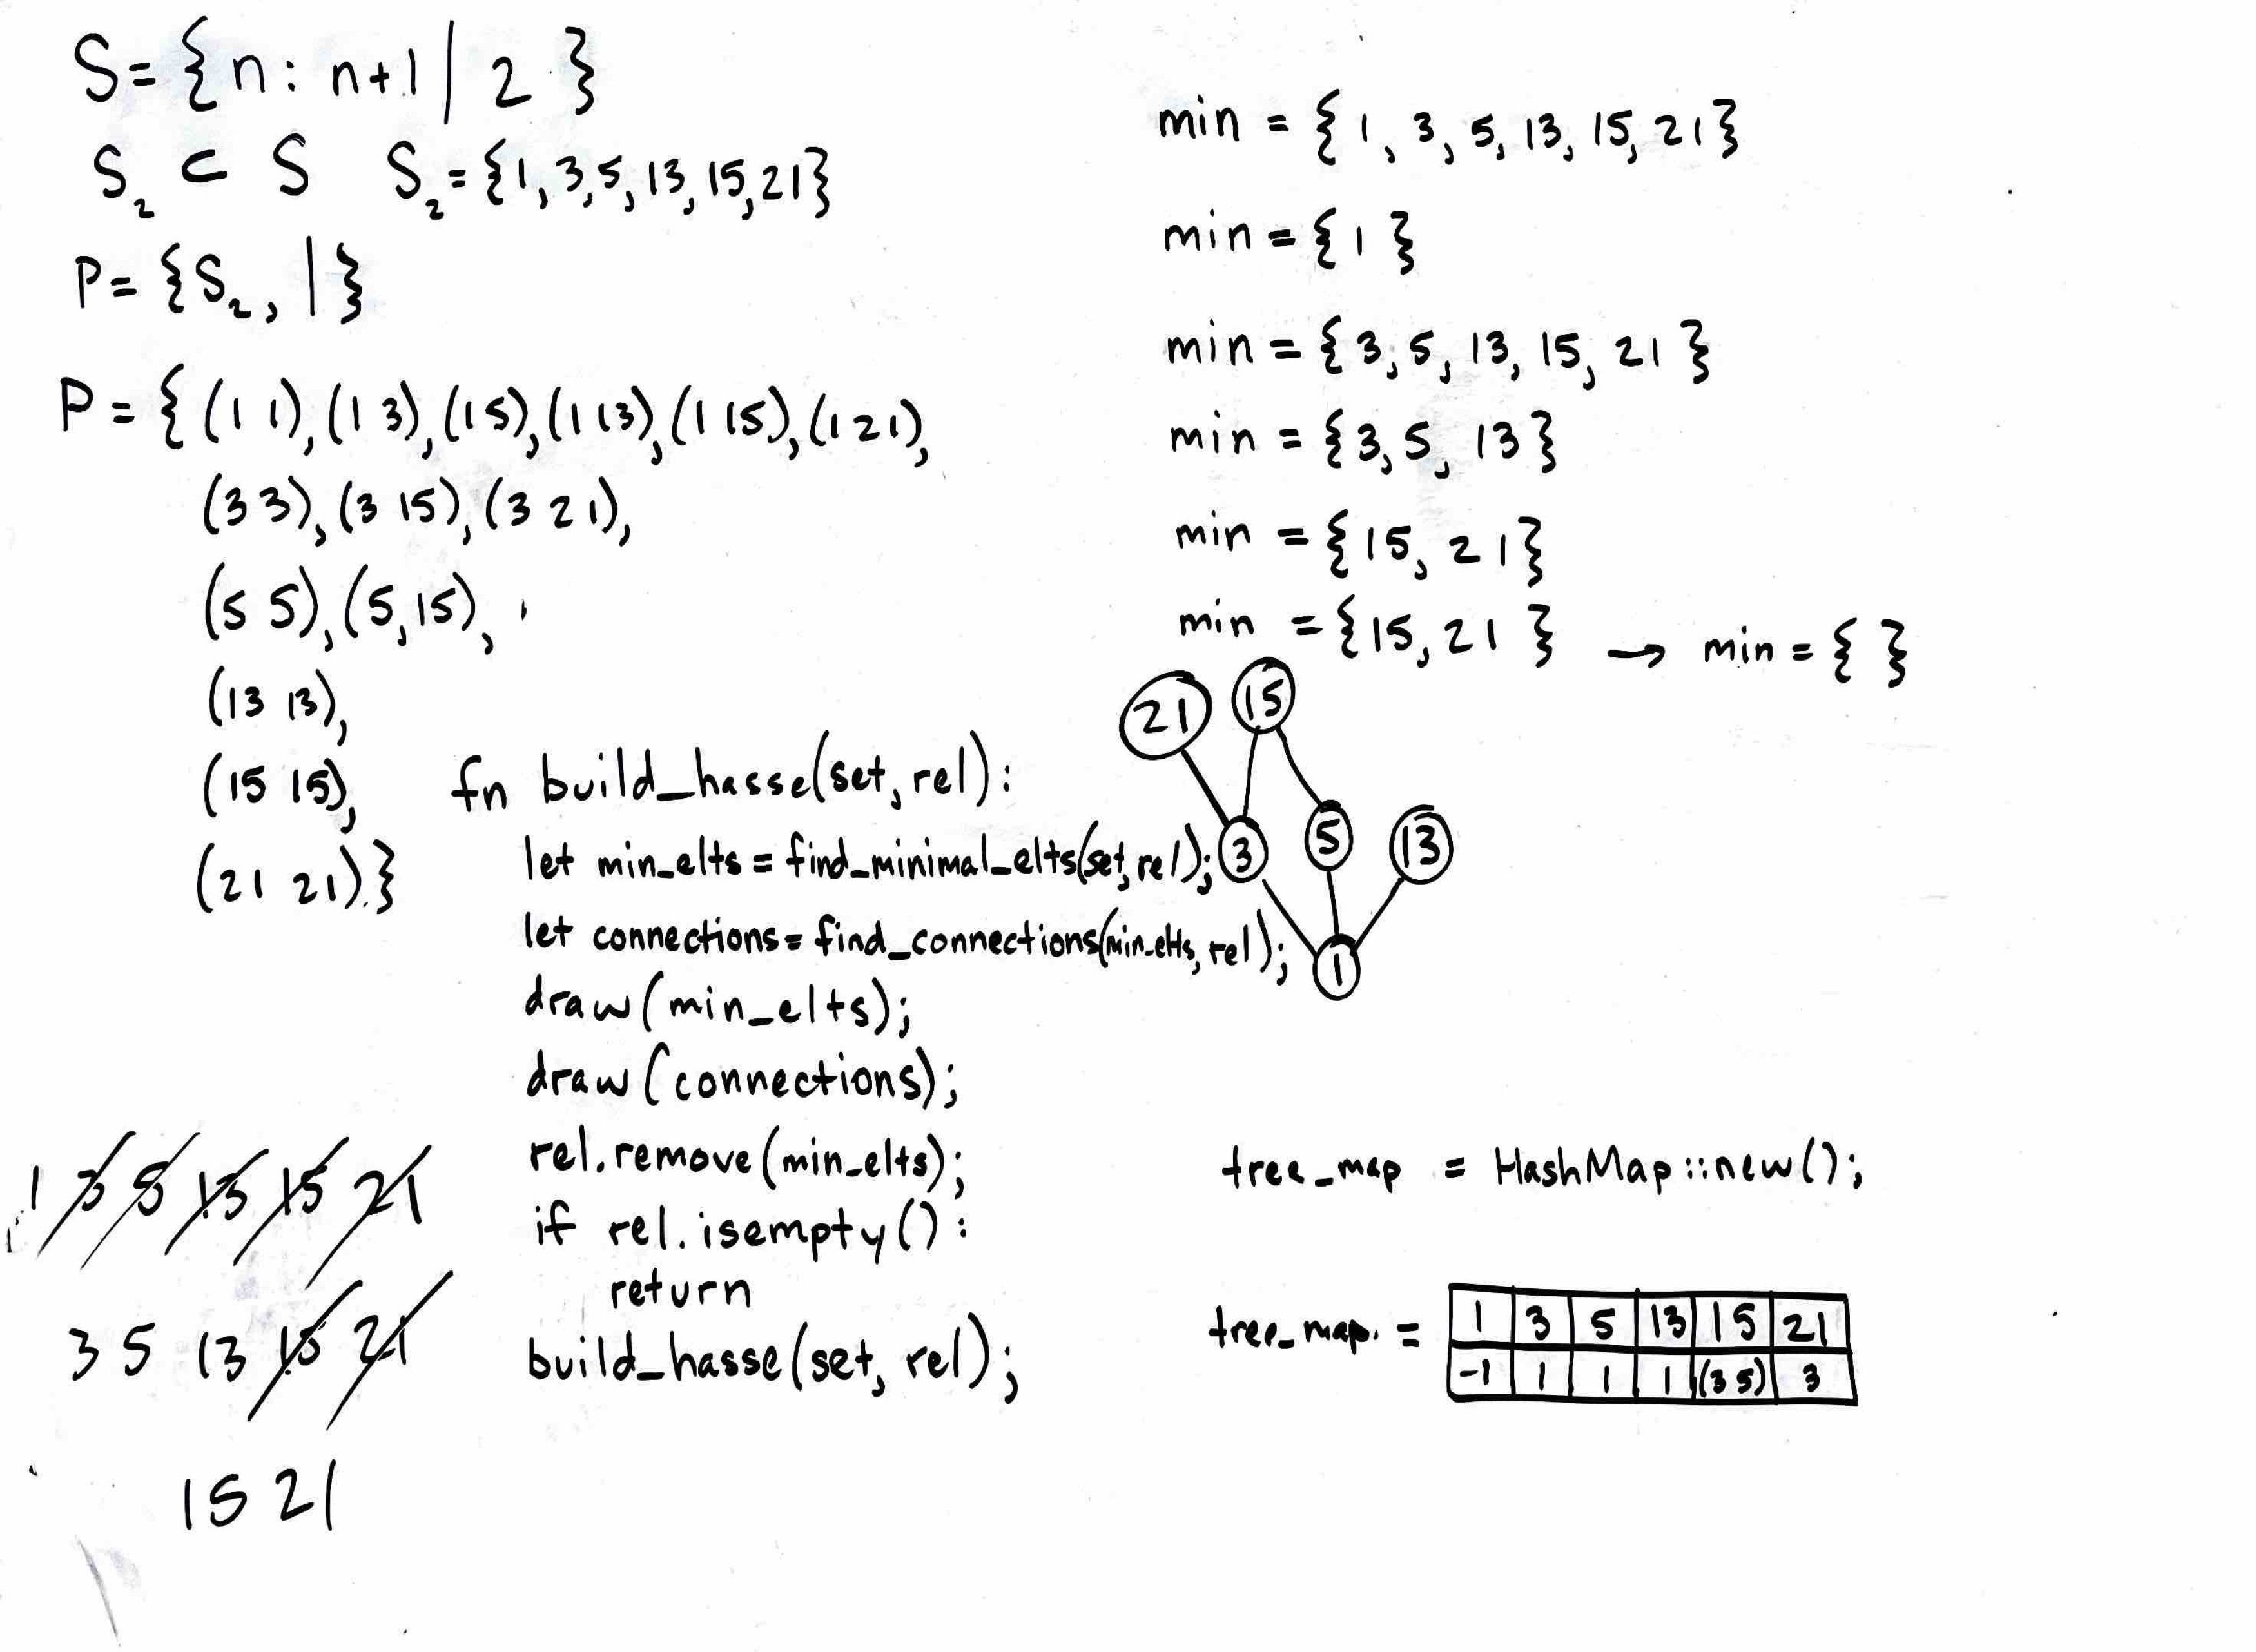 S={n: n+1 | 2 }
S₂ ⊂ S   S₂={1, 3, 5, 13, 15, 21}
P={S₂, |}
P={(1 1),(1 3),(1 5),(1 13),(1 15),(1 21),
(3 3),(3 15),(3 21),
(5 5),(5,15),
(13 13),
(15 15),
(21 21)}
min = {1, 3, 5, 13, 15, 21}
min = {1}
min = {3, 5, 13, 15, 21}
min = {3, 5, 13}
min = {15, 21}
min = {15, 21} → min = { }
21 15
3 5 13
1
fn build_hasse(set, rel):
let min_elts = find_minimal_elts(set, rel);
let connections = find_connections(min_elts, rel);
draw(min_elts);
draw(connections);
rel.remove(min_elts);
if rel.isempty():
return
build_hasse(set, rel);
1 3 5 13 15 21
3 5 13 15 21
15 21
tree_map = HashMap::new();
tree_map. =
1 3 5 13 15 21
-1 1 1 1 (3 5) 3